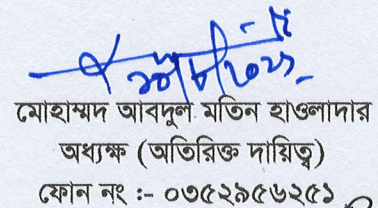 মোহাম্মদ আবদুল মতিন হাওলাদার
অধ্যক্ষ (অতিরিক্ত দায়িত্ব)
ফোন নং :- ০৩৫২৯৫৬২৫১